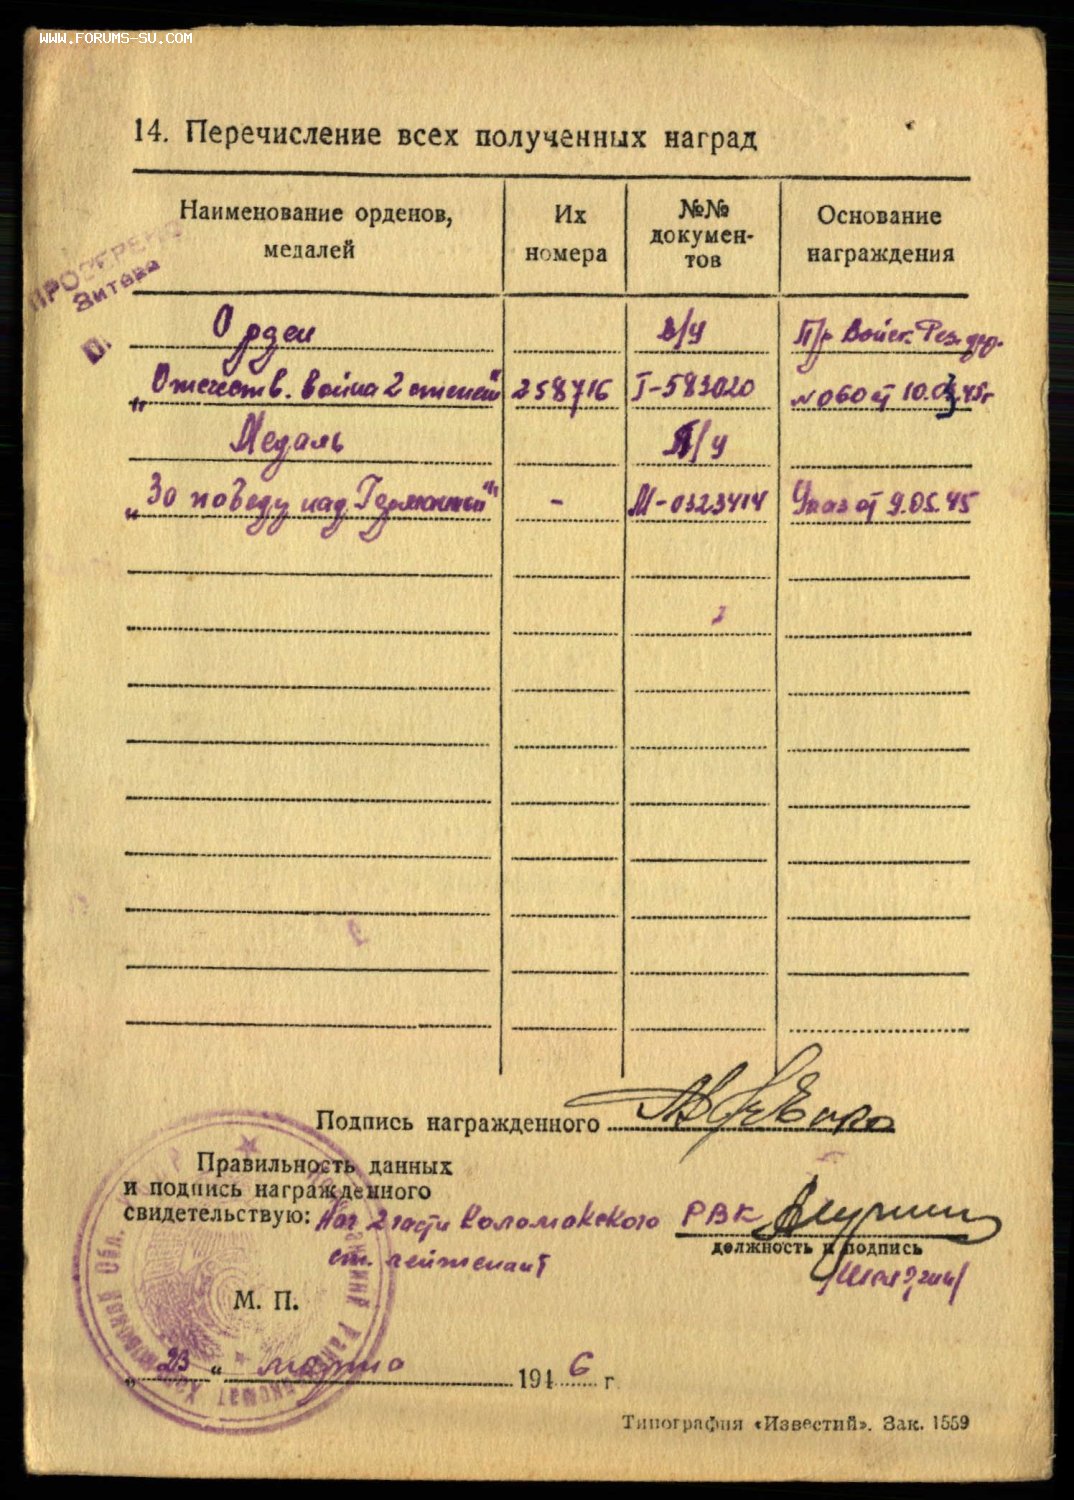 WWW.FORUMS-SU.COM
14. Перечисление всех полученных наград
Наименование орденов, медалей
Их номера
№№ документов
Основание награждения
Орден
в/у
Пр Войск.
"Отечеств. война 2 степени" 258716 I-583020 N 060 от 10.03.45г
Медаль
/у
"За победу над Германией" - М-0323414 Указ от 9.05.45
Подпись награжденного
Правильность данных
и подпись награжденного
свидетельствую: Нач 2 части Коломакского РВК
должность и подпись
ст. лейтенант
М. П.
"23" марта 1946 г
Типография «Известий». Зак. 1559